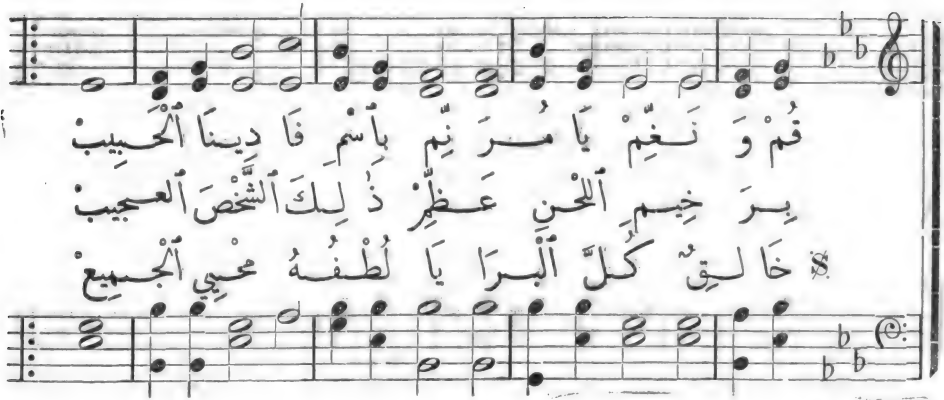 قُمْ وَ نَـغِّمْ يَا مُـرَ نِّم بِٱسْمِ فَا دِيـنَا ٱلْحَـبِيبْ
بِـرَ خِيـمِ ٱللَّحْـنِ عَـظِّمْ ذٰ لِـكَ ٱلشَّخْصَ ٱلعـجِيبْ
خَا لـقٌ كُلَّ ٱلْبـرَا يَا لُطْـفُـهُ مُحْيِي ٱلْجَـمِيعْ